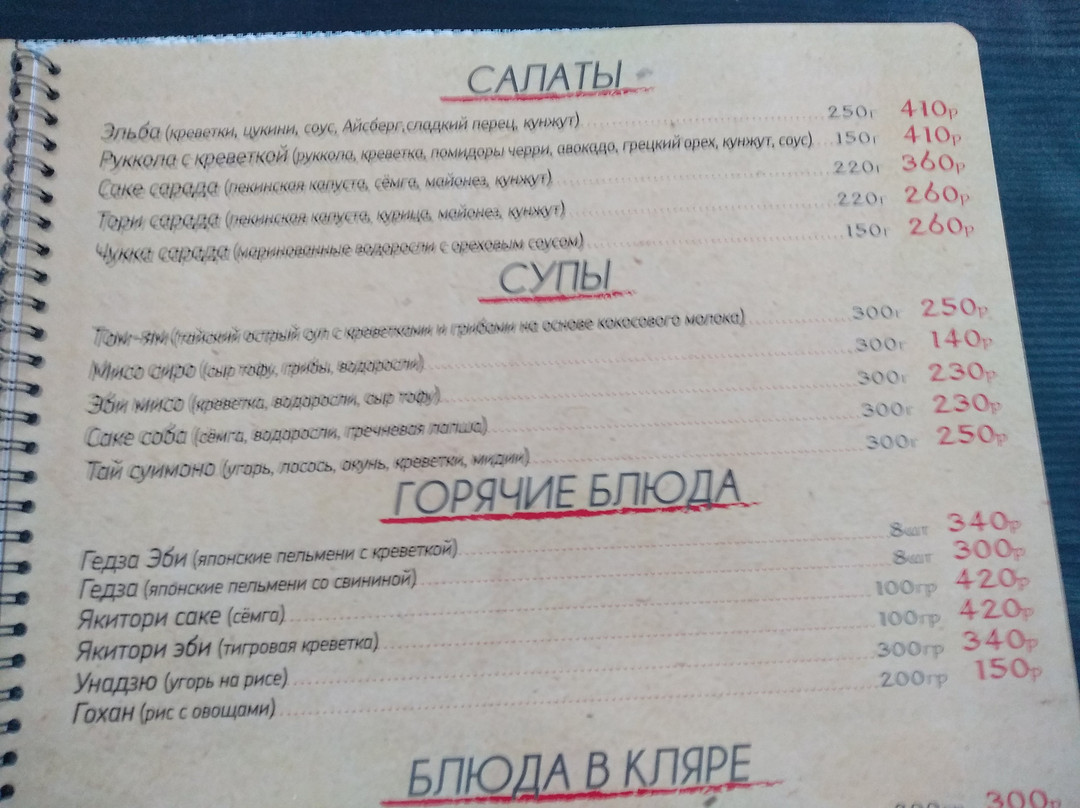 САЛАТЫ
Эльба (креветки, цукини, соус, Айсберг,сладкий перец, кунжут) 250г 410р
Руккола с креветкой (руккола, креветка, помидоры черри, авокадо, грецкий орех, кунжут, соус) 150г 410р
Саке сарада (пекинская капуста, сёмга, майонез, кунжут) 220г 360р
Тори сарада (пекинская капуста, курица, майонез, кунжут) 220г 260р
Чукка сарада (маринованные водоросли с ореховым соусом) 150г 260р
СУПЫ
Том-ям (тайский острый суп с креветками и грибами на основе кокосового молока) 300г 250р
Мисо сиро (сыр тофу, грибы, водоросли) 300г 140р
Эби мисо (креветка, водоросли, сыр тофу) 300г 230р
Саке соба (сёмга, водоросли, гречневая лапша) 300г 230р
Тай суимоно (угорь, лосось, окунь, креветки, мидии) 300г 250р
ГОРЯЧИЕ БЛЮДА
Гедза Эби (японские пельмени с креветкой) 8шт 340р
Гедза (японские пельмени со свининой) 8шт 300р
Якитори саке (сёмга) 100гр 420р
Якитори эби (тигровая креветка) 100гр 420р
Унадзю (угорь на рисе) 300гр 340р
Гохан (рис с овощами) 200гр 150р
БЛЮДА В КЛЯРЕ
300р